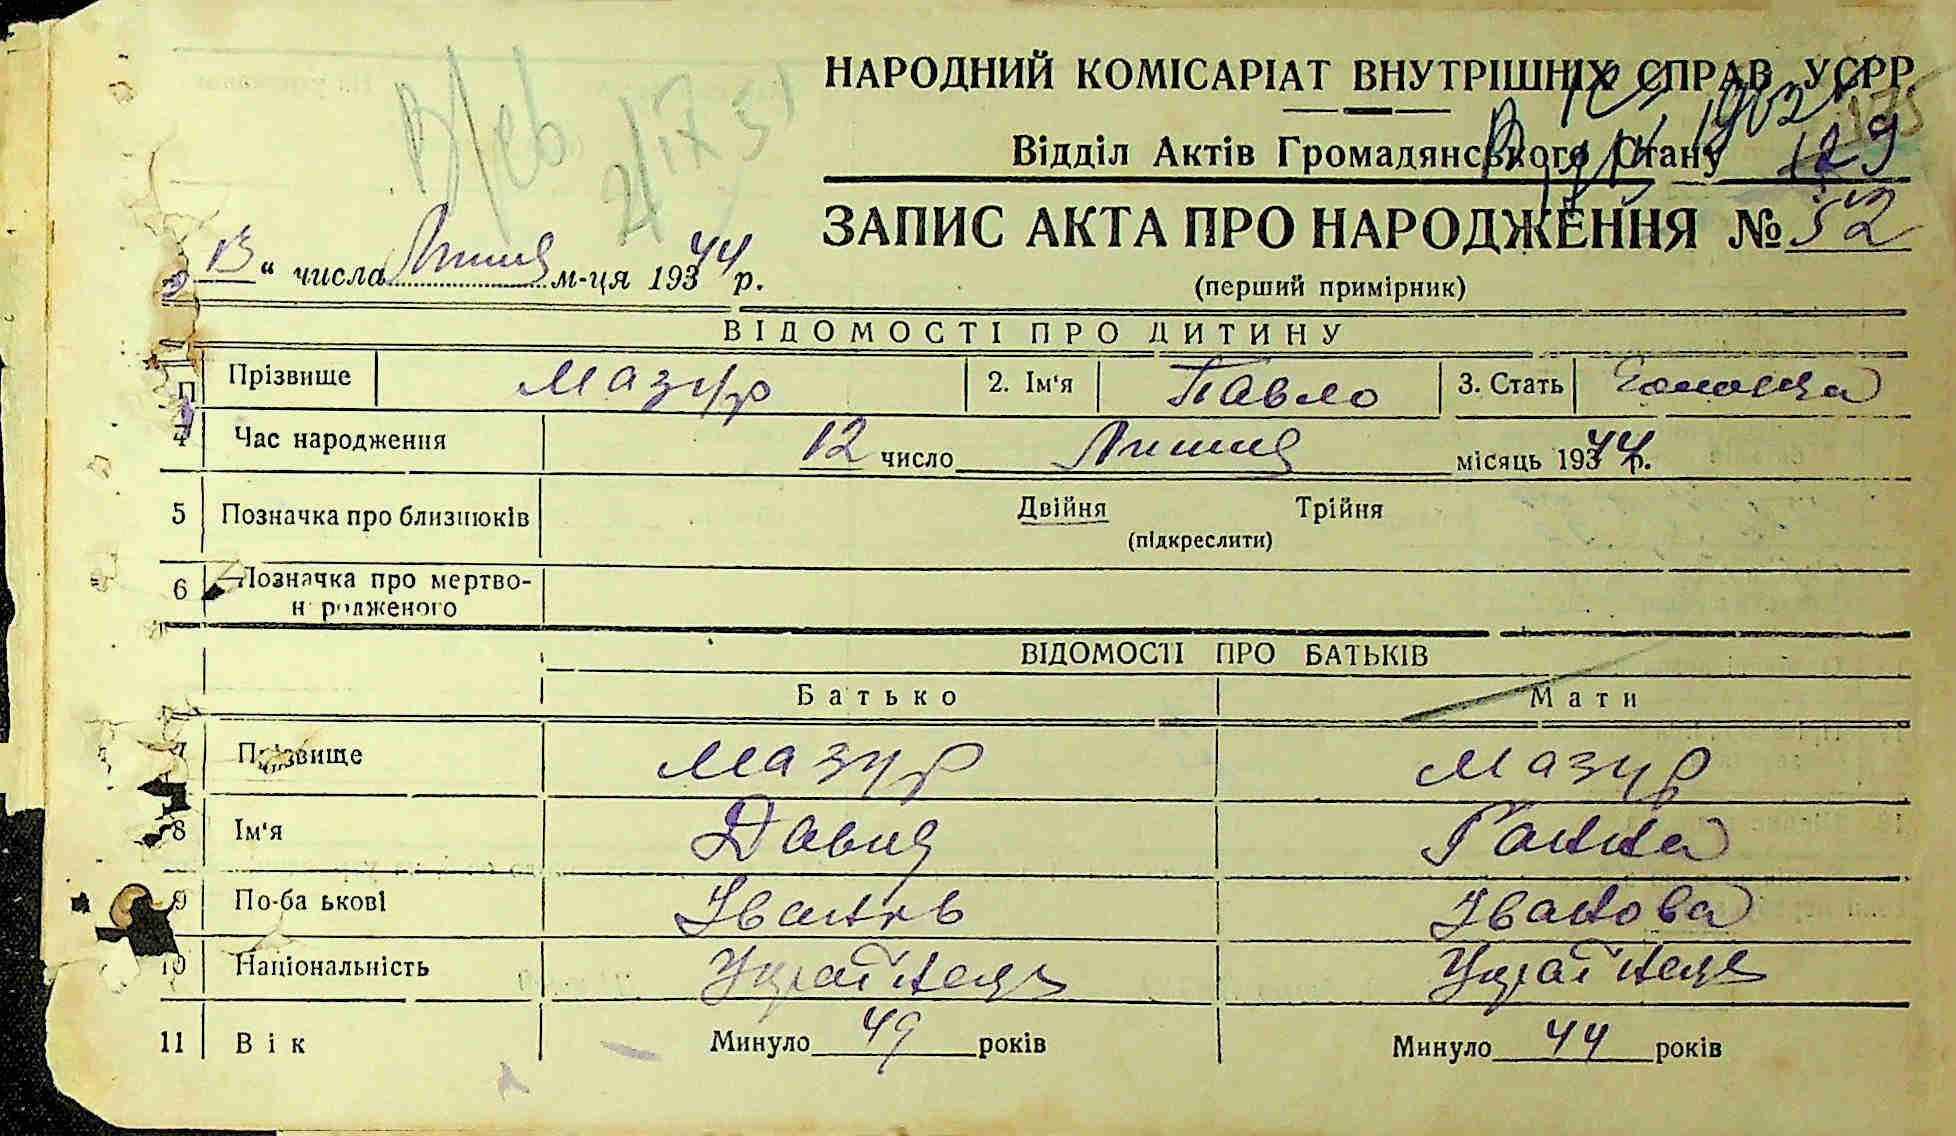 НАРОДНИЙ КОМІСАРІАТ ВНУТРІШНІХ СПРАВ УСРР
Відділ Актів Громадянського Стану 129
ЗАПИС АКТА ПРО НАРОДЖЕННЯ № 52
(перший примірник)
„13“ числа Липня м-ця 1944 р.
ВІДОМОСТІ ПРО ДИТИНУ
Прізвище Мазур 2. Ім'я Павло 3. Стать
4 Час народження 12 число Липня місяць 1944 р.
5 Позначка про близнюків Двійня Трійня
(підкреслити)
6 Позначка про мертво-
н родженого
ВІДОМОСТІ ПРО БАТЬКІВ
Батько Мати
7 Прізвище Мазур Мазур
8 Ім'я Давид Ганна
9 По-ба ькові Іванов Іванова
10 Національність Українец Українка
11 Вік Минуло 49 років Минуло 44 років